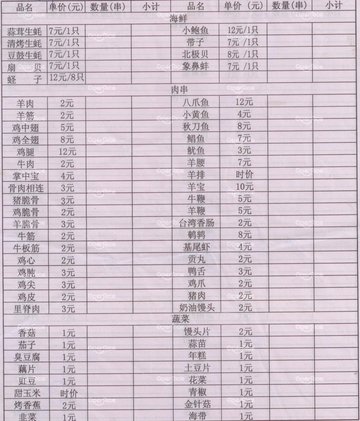 品名 单价(元) 数量(串) 小计 品名 单价(元) 数量(串) 小计
海鲜
蒜茸生蚝 7元/1只 小鲍鱼 12元/1只
清烤生蚝 7元/1只 带子 7元/1只
豆鼓生蚝 7元/1只 北极贝 8元/1只
扇贝 7元/1只 象鼻蚌 7元/1只
蛏子 12元/8只
肉串
羊肉 2元 八爪鱼 12元
羊筋 2元 小黄鱼 4元
鸡中翅 5元 秋刀鱼 8元
鸡全翅 8元 鲳鱼 7元
鸡腿 12元 鱿鱼 3元
牛肉 2元 羊腰 7元
掌中宝 4元 羊排 时价
骨肉相连 3元 羊宝 10元
猪脆骨 3元 牛鞭 5元
鸡脆骨 2元 羊鞭 5元
羊脆骨 3元 台湾香肠 2元
牛筋 2元 鹌鹑 8元
牛板筋 2元 基尾虾 4元
鸡心 2元 贡丸 2元
鸡肫 3元 鸭舌 3元
鸡尖 3元 鸡爪 2元
鸡皮 2元 猪肉 2元
里脊肉 3元 奶油馒头 2元
蔬菜
香菇 1元 馒头片 2元
茄子 1元 蒜苗 1元
臭豆腐 1元 年糕 1元
藕片 1元 土豆片 1元
豇豆 1元 花菜 1元
甜玉米 时价 青椒 1元
烤香蕉 2元 金针菇 1元
韭菜 1元 海带 1元